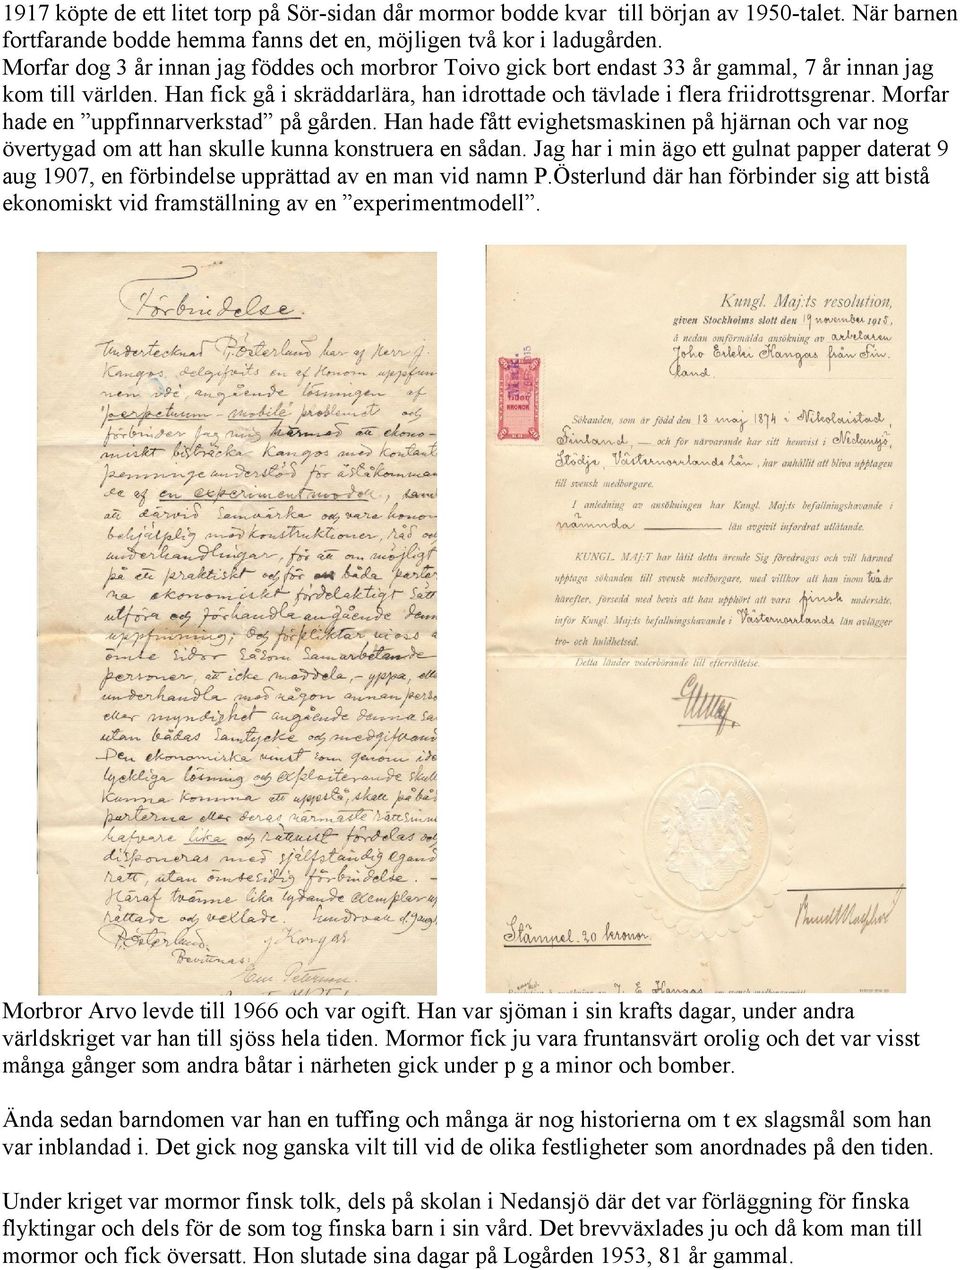 1917 köpte de ett litet torp på Sör-sidan dår mormor bodde kvar till början av 1950-talet. När barnen
fortfarande bodde hemma fanns det en, möjligen två kor i ladugården.
Morfar dog 3 år innan jag föddes och morbror Toivo gick bort endast 33 år gammal, 7 år innan jag
kom till världen. Han fick gå i skräddarlära, han idrottade och tävlade i flera friidrottsgrenar. Morfar
hade en ”uppfinnarverkstad” på gården. Han hade fått evighetsmaskinen på hjärnan och var nog
övertygad om att han skulle kunna konstruera en sådan. Jag har i min ägo ett gulnat papper daterat 9
aug 1907, en förbindelse upprättad av en man vid namn P.Österlund där han förbinder sig att bistå
ekonomiskt vid framställning av en ”experimentmodell”.
Förbindelse.
Undertecknad P. Österlund har af Herr J.
Kangas, delgifvits en af Honom uppfun
nen idé, angående lösningen af
"perpetuum-mobile" problemet och
förbinder jag mig härmed att ekono-
miskt bisträcka Kangas med kontant
penningeunderstöd för åstadkomman
de af en experimentmodell, samt
att därvid samvärka och vara honom
behjälplig med konstruktioner, råd och
underhandlingar, för att om möjligt
på ett praktiskt och för båda parter
na ekonomiskt fördelaktigt sätt
utföra och förhandla angående denna
uppfinning; och förpliktar vi oss å
ömse sidor såsom samarbetande
personer, att icke meddela, yppa, eller
underhandla med någon annan person
eller myndighet angående denna sak
utan bådas samtycke och medgifvand
Den ekonomiska vinst som genom idé
lyckliga lösning och exploiterande skull
kunna komma att uppstå, skall på båd
parterna eller deras närmaste rättsinne
hafvare lika och rättvist fördelas och
disponeras med självständig egand
rätt, utan ömsesidig förbindelse.
Häraf tvänne lika lydande exemplar up
rättade och vexlade.
P. Österlund. J Kangas
Bevittnas:
Kungl. Maj:ts resolution,
given Stockholms slott den 19 november 1915,
å nedan omförmälda ansökning av arbetaren
Joho Erkki Kangas från Fin-
land.
KRONOR
Sökanden, som är född den 13 maj 1874 i Nikolaistad,
Finland, — och för närvarande har sitt hemvist i Nedansjö,
Stödje, Västernorrlands län, har anhållit att bliva upptagen
till svensk medborgare.
I anledning av ansökningen har Kungl. Maj:ts befallningshavande i
nämnda län avgivit infordrat utlåtande.
KUNGL. MAJ:T har låtit detta ärende Sig föredragas och vill härmed
upptaga sökanden till svensk medborgare, med villkor att han inom två år
härefter, försedd med bevis att han upphört att vara finsk undersåte,
inför Kungl. Maj:ts befallningshavande i Västernorrlands län avlägger
tro- och huldhetsed.
Detta länder vederbörande till efterrättelse.
Stämpel 20 kronor.
Morbror Arvo levde till 1966 och var ogift. Han var sjöman i sin krafts dagar, under andra
världskriget var han till sjöss hela tiden. Mormor fick ju vara fruntansvärt orolig och det var visst
många gånger som andra båtar i närheten gick under p g a minor och bomber.
Ända sedan barndomen var han en tuffing och många är nog historierna om t ex slagsmål som han
var inblandad i. Det gick nog ganska vilt till vid de olika festligheter som anordnades på den tiden.
Under kriget var mormor finsk tolk, dels på skolan i Nedansjö där det var förläggning för finska
flyktingar och dels för de som tog finska barn i sin vård. Det brevväxlades ju och då kom man till
mormor och fick översatt. Hon slutade sina dagar på Logården 1953, 81 år gammal.